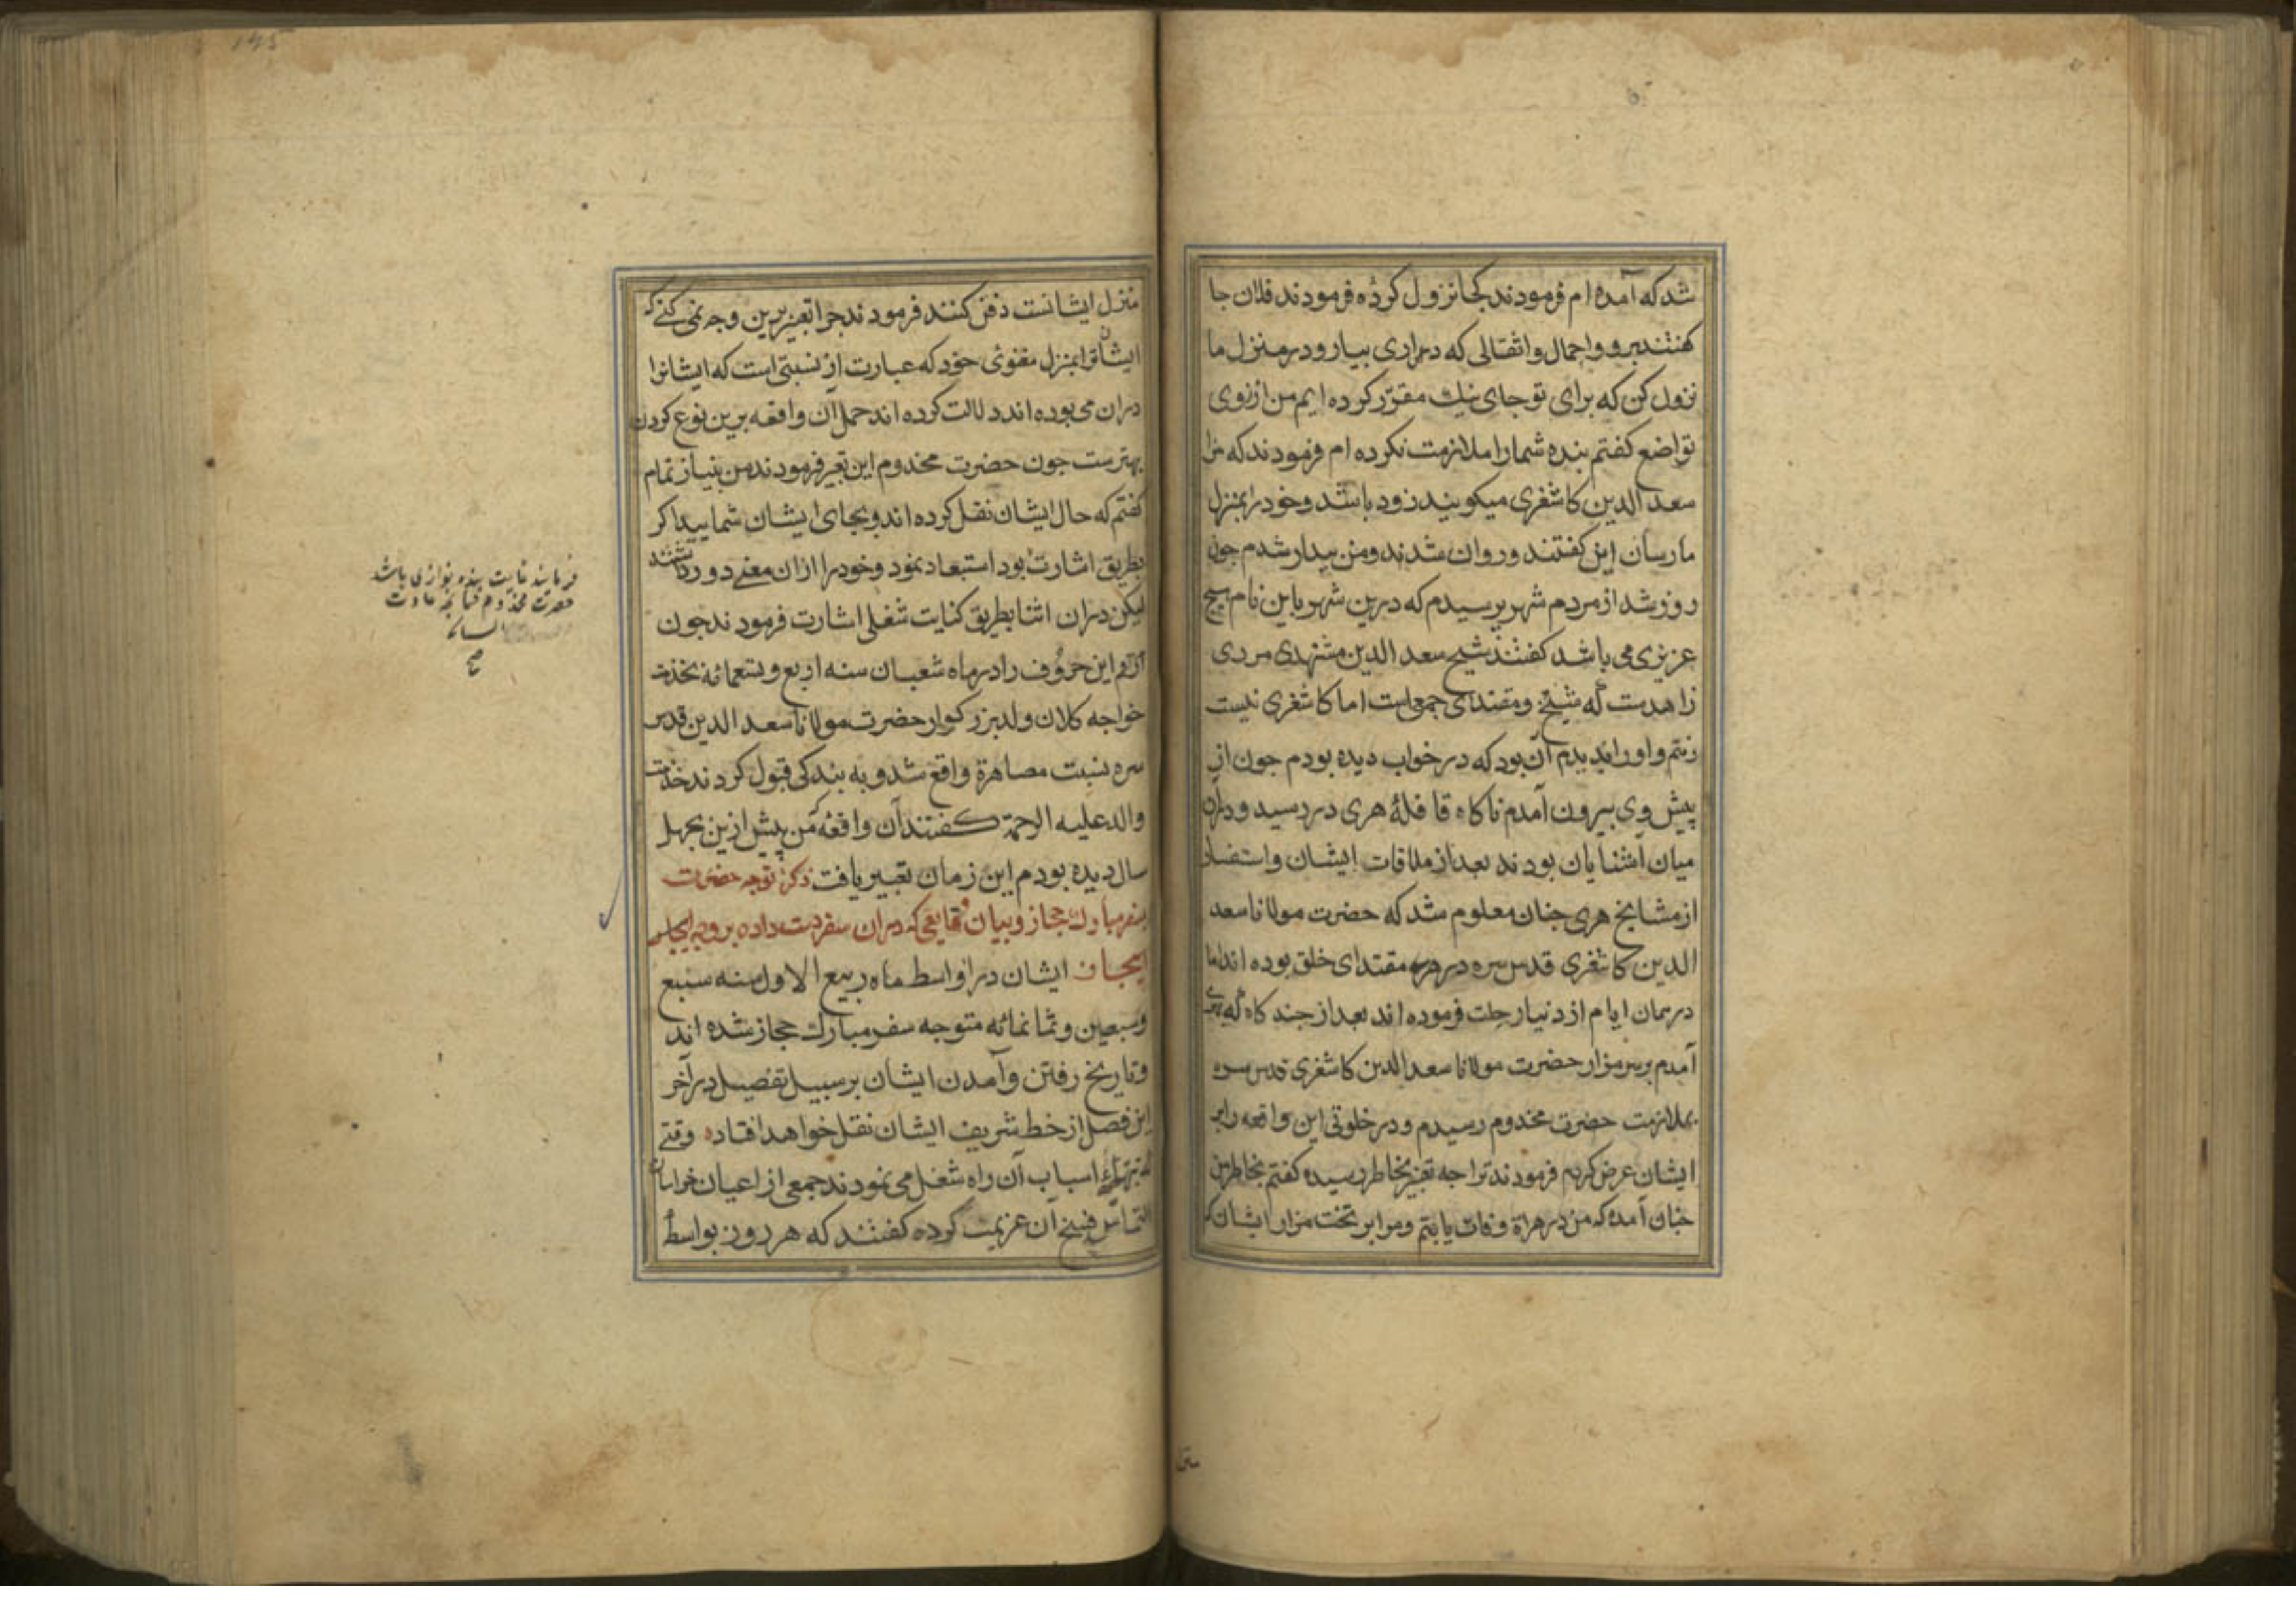 شد که آمده ام فرمودند کجا نزول کرده فرمودند فلان جا
کفتند برو و احمال و اثقالی که داری بیار و در منزل ما
نزول کن که برای تو جای نیك مقرر کرده ایم من از روی
تواضع کفتم بنده شما را ملازمت نکرده ام فرمودند که مرا
سعد الدین کاشغری میکویند زود باشد و خود را بمنزل
ما رسان این کفتند و روان شدند و من بیدار شدم جون
روز شد از مردم شهر پرسیدم که درین شهر باین نام هیچ
عزیزی می باشد کفتند شیخ سعد الدین مشهدی مردی
زاهدست که شیخ و مقتدای جمعی است اما کاشغری نیست
رفتم و او را بدیدم آن بود که در خواب دیده بودم جون از
پیش وی بیرون آمدم ناکاه قافلهٔ هری در رسید و دران
میان آشنایان بودند بعد از ملاقات ایشان و استفسار
از مشایخ هری جنان معلوم شد که حضرت مولانا سعد
الدین کاشغری قدس سره در هری مقتدای خلق بوده اند اما
در همان ایام از دنیا رحلت فرموده اند بعد از جند کاه که بهری
آمدم بر سر مزار حضرت مولانا سعد الدین کاشغری قدس سره
بملازمت حضرت مخدوم رسیدم و در خلوتی این واقعه را بر
ایشان عرض کردم فرمودند ترا جه تعبیر بخاطر رسیده کفتم بخاطر من
جنان آمده که من در هراة وفات یابم و مرا بر تخت مزار ایشان که
منزل ایشانست دفن کنند فرمودند جرا تعبیر برین وجه نمی کنی که
ایشان ترا بمنزل معنوی خود که عبارت از نسبتی است که ایشانرا
دران می بوده اند دلالت کرده اند حمل آن واقعه برین نوع کردن
بهترست جون حضرت مخدوم این تعبیر فرمودند من بنیاز تمام
کفتم که حال ایشان نقل کرده اند و بجای ایشان شمایید اکر
بطریق اشارت بود استبعاد نمود و خود را ازان معنی دور داشتند
لیکن دران اثنا بطریق کنایت شغلی اشارت فرمودند جون
راقم این حروف را در ماه شعبان سنه اربع و تسعمائه بخدمت
خواجه کلان ولد بزرکوار حضرت مولانا سعد الدین قدس
سره نسبت مصاهرة واقع شد و به بندکی قبول کردند خدمت
والد علیه الرحمة کفتند آن واقعه که من پیش ازین بجهل
سال دیده بودم این زمان تعبیر یافت ذکر توجه حضرت
بسفر مبارك حجاز و بیان وقایعی که دران سفر دست داده بر وجه
ایجاز ایشان در اواسط ماه ربیع الاول سنه سبع
وسبعین وثمانمائه متوجه سفر مبارك حجاز شده اند
وتاریخ رفتن و آمدن ایشان بر سبیل تفصیل در آخر
این فصل از خط شریف ایشان نقل خواهد افتاد وقتی
که بتهیهٔ اسباب آن راه شغل می نمودند جمعی از اعیان خراسان
التماس فسخ آن عزیمت کرده کفتند که هر روز بواسطهٔ
فرمایند غایت بنده نوازی باشد
حضرت مخدوم جنانجه عادت
صح